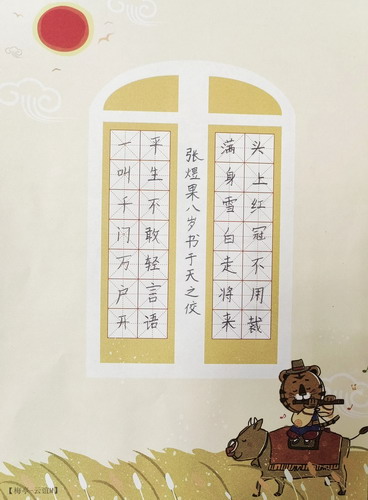 头上红冠不用裁
满身雪白走将来
平生不敢轻言语
一叫千门万户开
张煜果八岁书于天之佼